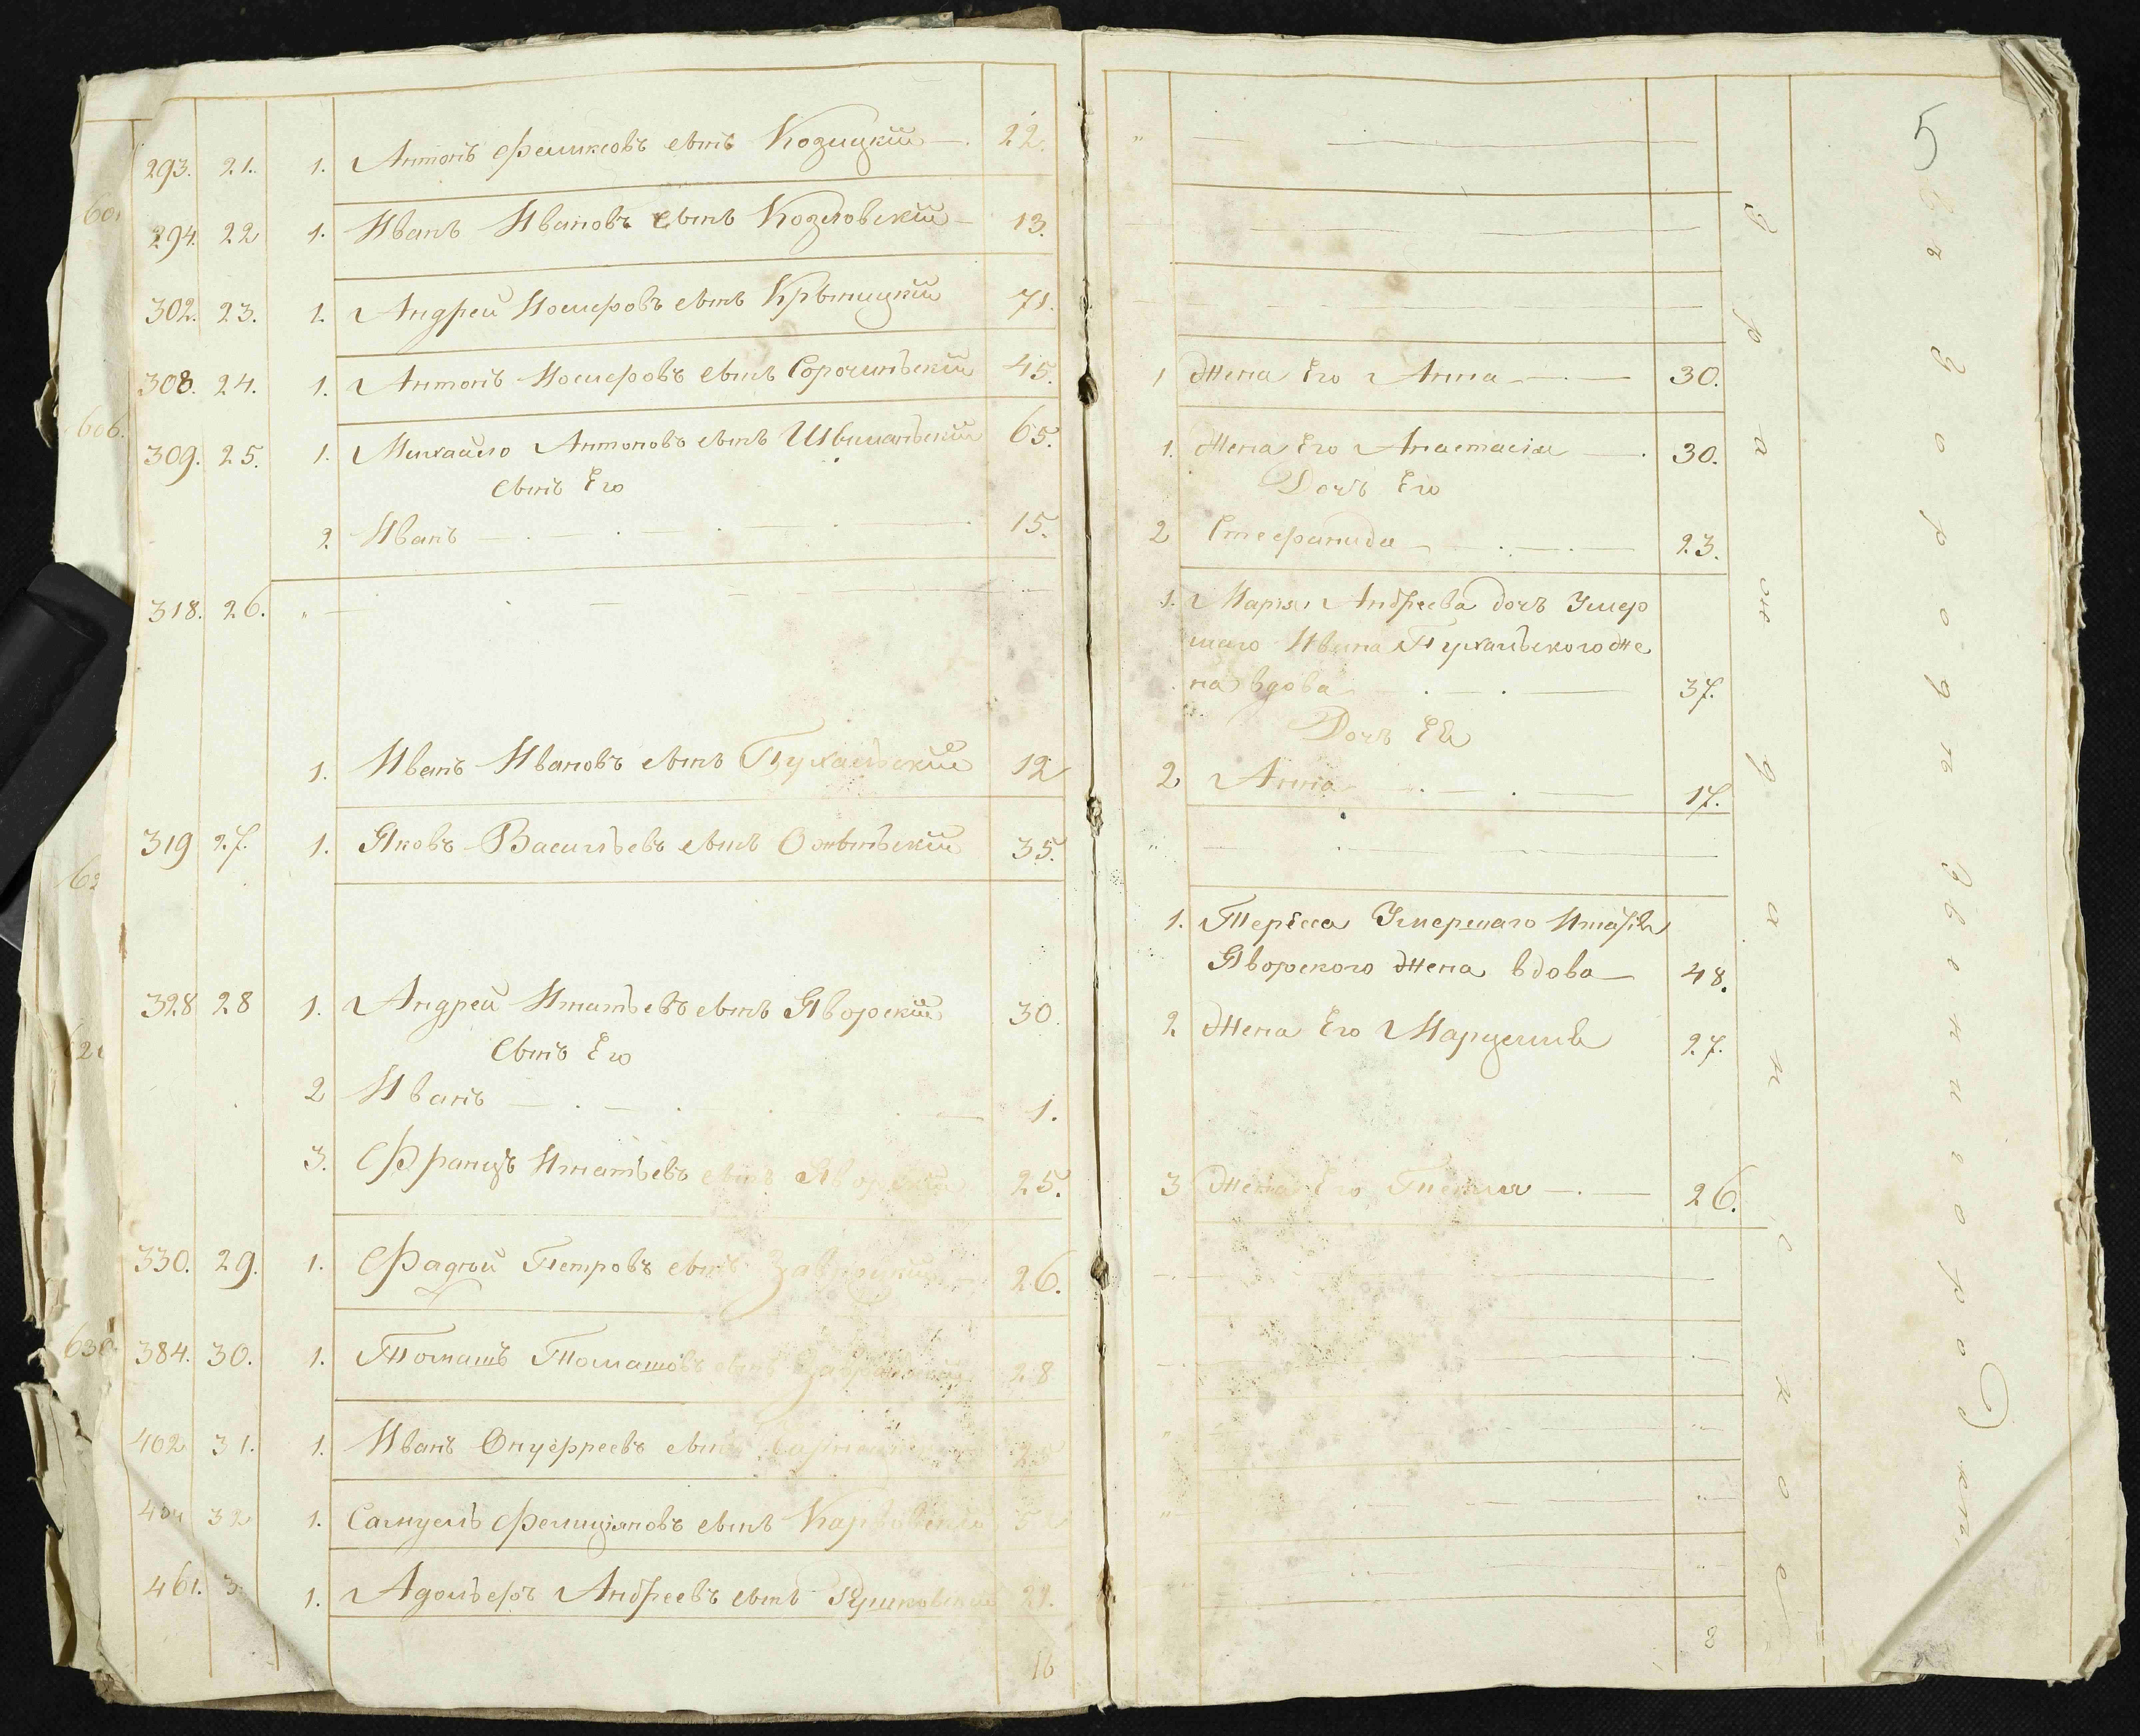 293. 21. 1. Антонъ Феликсовъ сынъ Козицкій 22.
294. 22 1. Иванъ Ивановъ сынъ Козловскій 13.
302. 23. 1. Андрей Іосифовъ сынъ 71.
308. 24. 1. Антонъ Іосифовъ сынъ Сорочинскій 45.
1 Жена Его Анна 30.
309. 25. 1. Михайло Антоновъ сынъ 65.
1. Жена Его Анастасія 30.
сынъ Его
Дочь Его
2. Иванъ 15.
2 Стефанида 23.
318. 26.
1. Марія Андреева дочь Умер
шаго Ивана Пухальского Же
на вдова 37.
Дочь Ея
1. Иванъ Ивановъ сынъ Пухальскій 12
2 Анна 17.
319 27. 1. Яковъ Васильевъ сынъ 35.
1. Тереса Умершаго Игнатія
Яворского Жена вдова 48.
328 28 1. Андрей Игнатьевъ сынъ Яворскій 30.
2. Жена Его Марцелля 27.
Сынъ Его
2 Иванъ 1.
3. Францъ Игнатьевъ сынъ Яворскій 25.
3 Жена Его Текля 26.
330. 29. 1. Фадѣй Петровъ сынъ 26.
384. 30. 1. Томашъ Томашовъ сынъ 28
402 31. 1. Иванъ Онуфреевъ сынъ
32 1. Самуель Фелиціяновъ сынъ
461. 1. Адольфъ Андреевъ сынъ 21.
16
8
5
Гражданское
Въ городѣ Звенигородкѣ